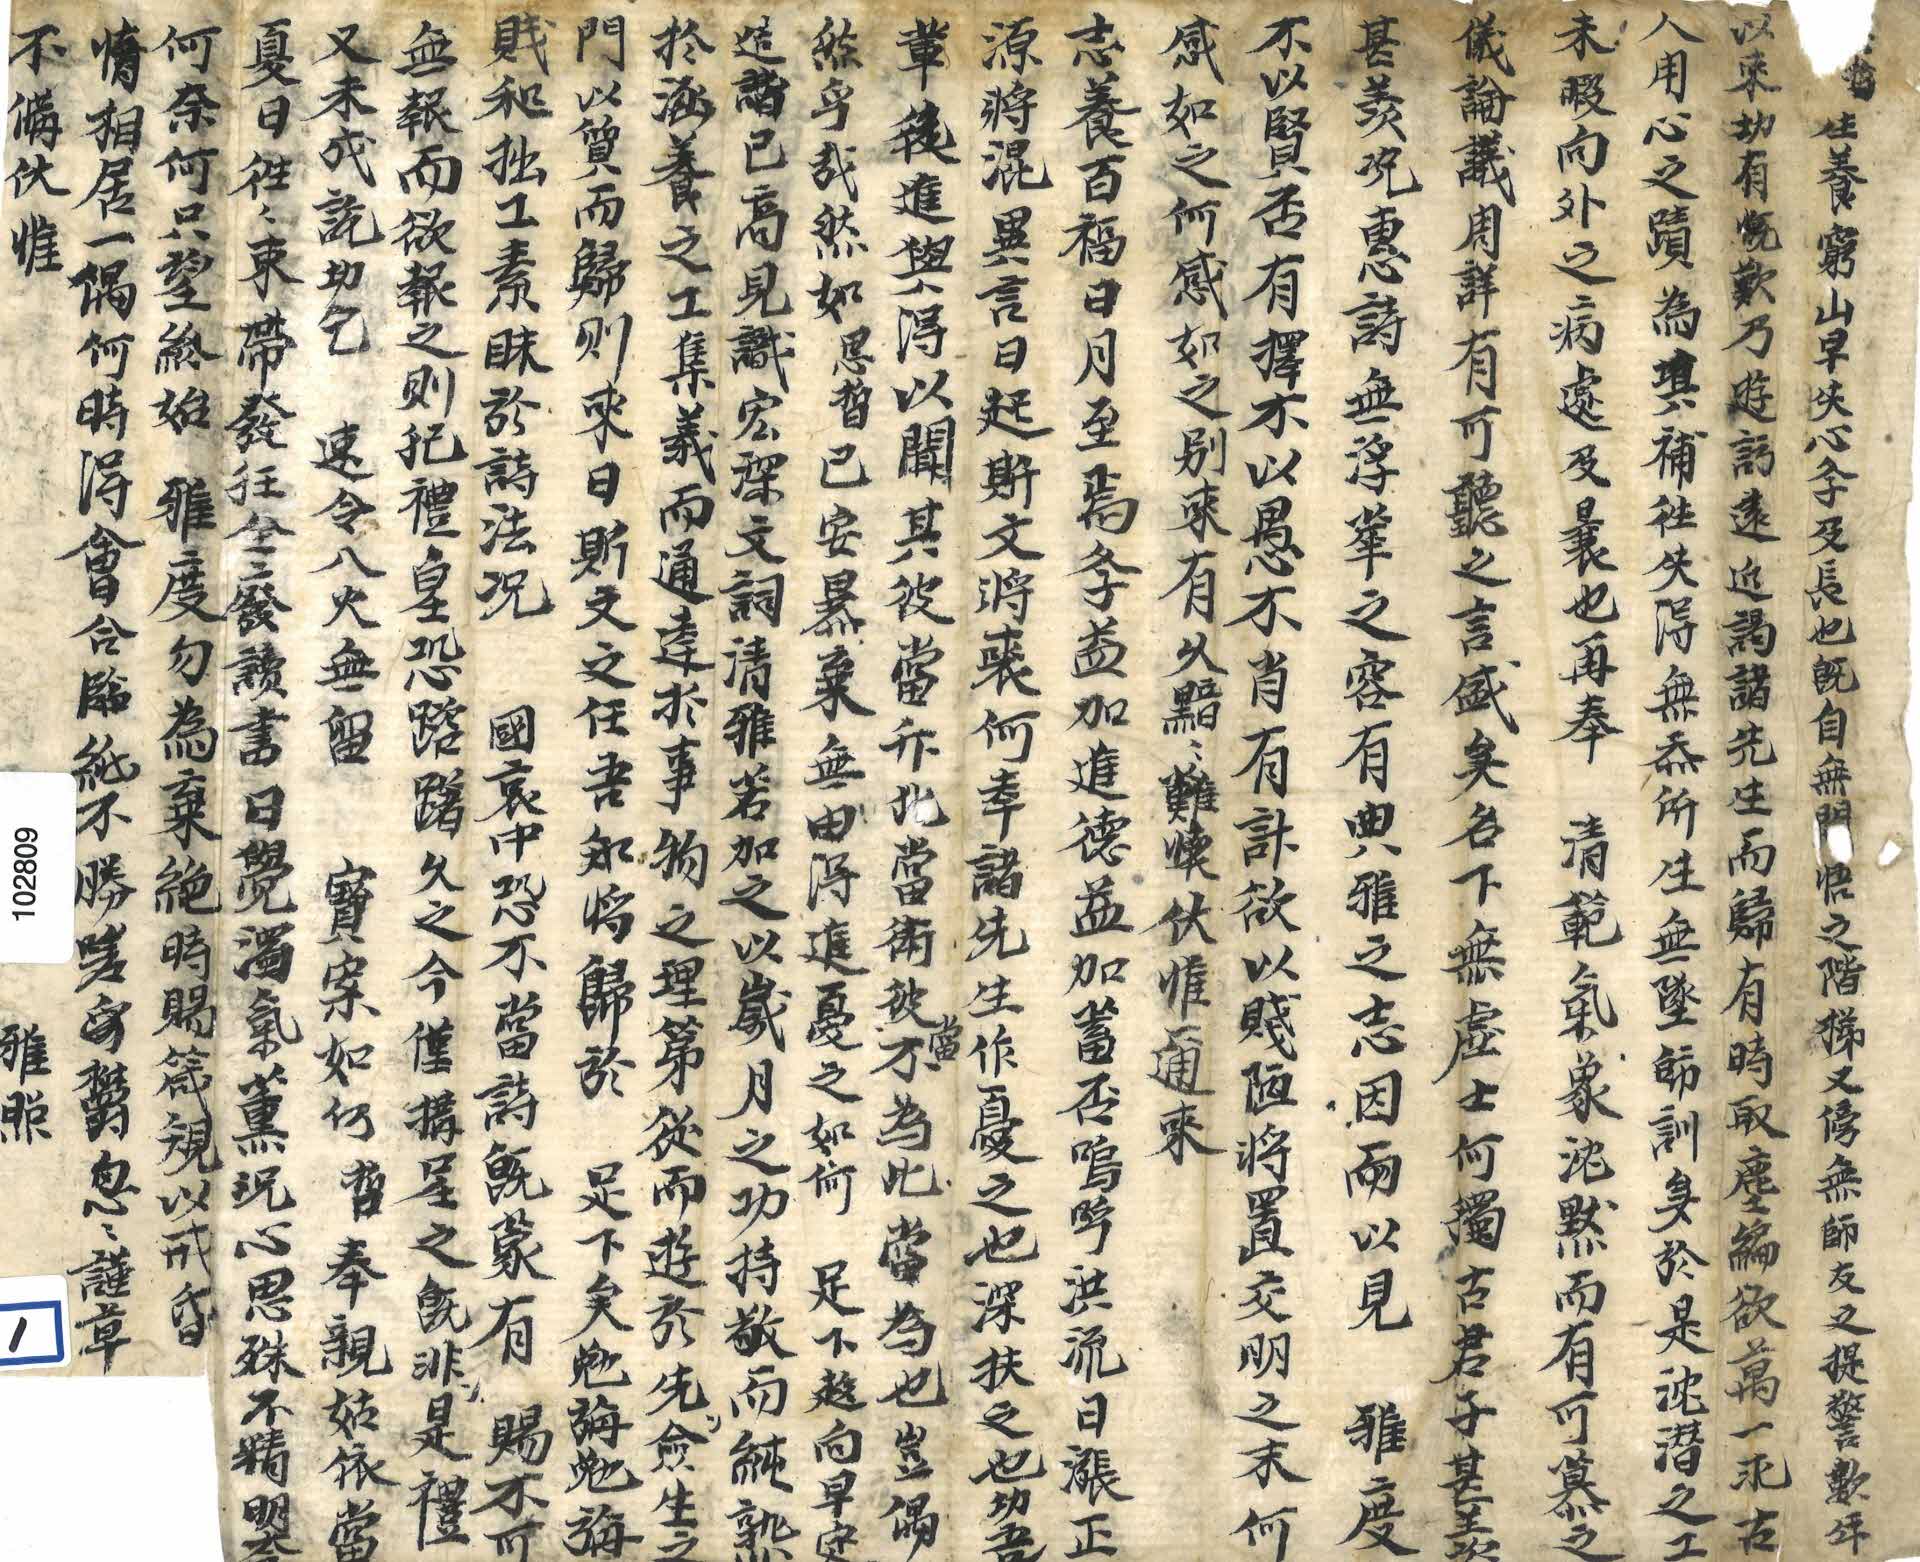 哲生養窮山早失心學及長也旣自無門悟之階梯又傍無師友之提警數年
以來切有慨歎乃遊訪遠近謁諸先生而歸有時取塵編欲萬一求古
人用心之蹟為填補往失得無忝所生無墜師訓矣於是沈潛之工
未暇向外之病處及曩也再奉 清範氣象沈默而有可慕之
儀論議周詳有可聽之言盛矣名下無虛士何獨古君子甚美
甚羨況惠詩無浮華之容有典雅之志因而以見 雅度
不以賢否有擇不以愚不肖有計欲以賤陋將置交明之末何
感如之何感如之別來有久黯〻難懷伏惟邇來
志養百福日月至焉冬益加進德益加蓄否嗚呼洪流日漲正
源將混異言日起斯文將喪何幸諸先生作憂之也深扶之也功吾
輩後進與得以聞其彼當斥此當衛彼不當為此當為也豈偶
然乎哉然如愚哲已安暴棄無由得進憂之如何 足下趍向早定
造詣已高見識宏深文詞清雅若加之以歲月之功持敬而純熟
於涵養之工集義而通達於事物之理第從而遊於先僉生之
門以質而歸則來日斯文之任吾知將歸於 足下矣勉旃勉旃
賎和拙工素昧於詩法况 國哀中恐不當詩旣蒙有 賜不可
無報而欲報之則犯禮皇恐踏躇久之今僅搆呈之旣非是禮
又未成詑功乞 速令八火無留 寶案如何 哲奉親姑依當
夏日徃〻束帶發狂全廢讀書日覺濁氣薰沉心思殊不精明奈
何奈何只望終始 雅度勿為棄絶時賜箴規以戒昏
惰相居一偶何時得會合臨紙不勝嗟菀欝怱〻謹草
不備伏惟 雅照
102809
1